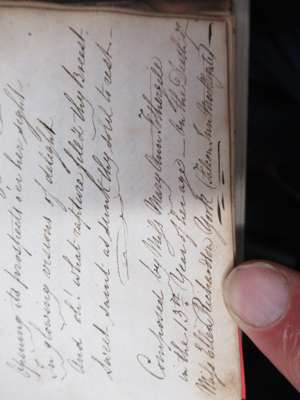 Opening its prospects o'er her sight
In glowing visions of delight
And oh! what rapture filled thy breast
Sweet saint as sunk thy soul to rest
Composed by Miss Mary Ann
in the 13th Year of her age — On the Death of
Miss Eliza Richardson